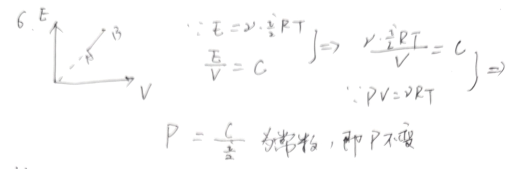 6. E
B
A
V
∵ E = ν · i/2 RT
E/V = C
} ⇒ ν · i/2 RT / V = C
∵ PV = νRT
} ⇒
P = C / (i/2) 为常数，即P不变